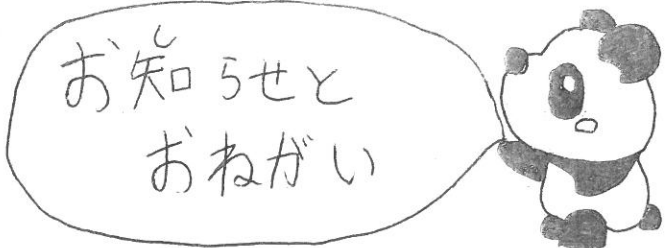 お知らせと
おねがい